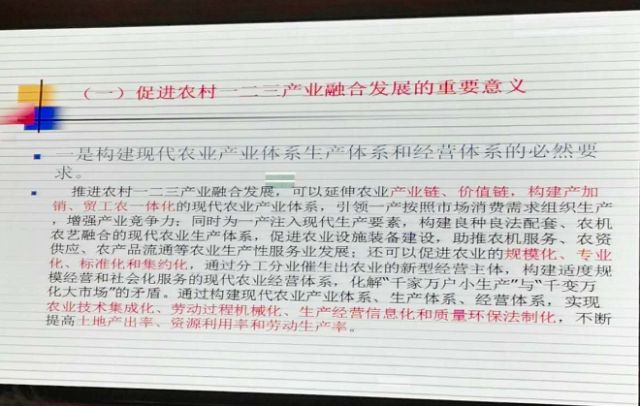 （一）促进农村一二三产业融合发展的重要意义
一是构建现代农业产业体系生产体系和经营体系的必然要
求。
推进农村一二三产业融合发展，可以延伸农业产业链、价值链，构建产加
销、贸工农一体化的现代农业产业体系，引领一产按照市场消费需求组织生产
，增强产业竞争力；同时为一产注入现代生产要素，构建良种良法配套、农机
农艺融合的现代农业生产体系，促进农业设施装备建设，助推农机服务、农资
供应、农产品流通等农业生产性服务业发展；还可以促进农业的规模化、专业
化、标准化和集约化，通过分工分业催生出农业的新型经营主体，构建适度规
模经营和社会化服务的现代农业经营体系，化解“千家万户小生产”与“千变万
化大市场”的矛盾。通过构建现代农业产业体系、生产体系、经营体系，实现
农业技术集成化、劳动过程机械化、生产经营信息化和质量环保法制化，不断
提高土地产出率、资源利用率和劳动生产率。